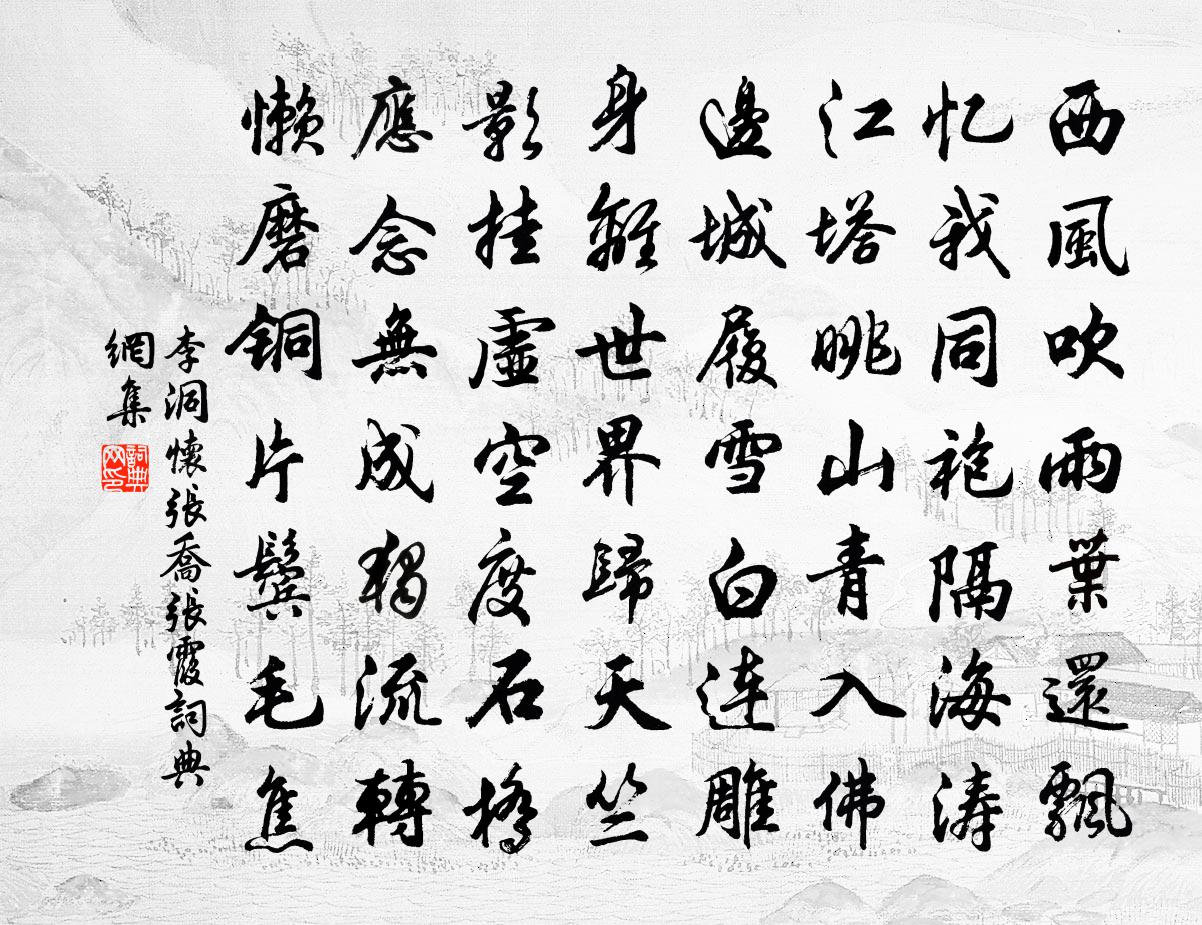 西風吹雨葉還飄
忆我同袍隔海濤
江塔眺山青入佛
邊城履雪白連雕
身離世界歸天竺
影挂虛空度石橋
應念無成獨流轉
懶磨銅片鬢毛焦
李洞懷張喬張霞詞典
網集
詞典
网印